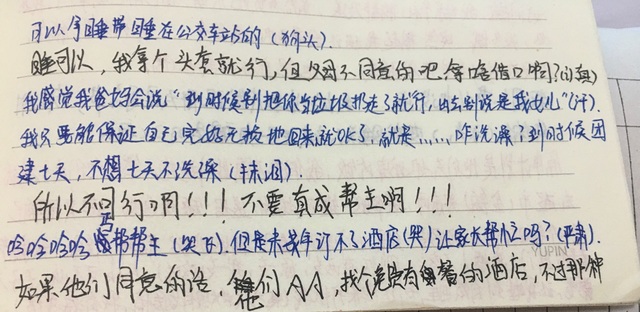 可以拿睡带睡在公交车站的（狗头）.
睡可以，我拿个头套就行，但父母不同意的吧，拿啥借口啊?(认真)
我感觉我爸妈会说“到时候别把你当垃圾扔走了就行,出去别说是我女儿”(汗).
我只要能保证自己完好无损地回来就OK了.就是……咋洗澡?到时候团
建七天,不想七天不洗澡(抹泪).
所以不可行啊!!!不要真成帮主啊!!!
哈哈哈哈 丐帮帮主(哭的).但是未成年订不了酒店(哭)让家长帮忙吗?(严肃).
如果他们同意的话,他们AA,我找个免费有餐的酒店,不过那种
YUPIN